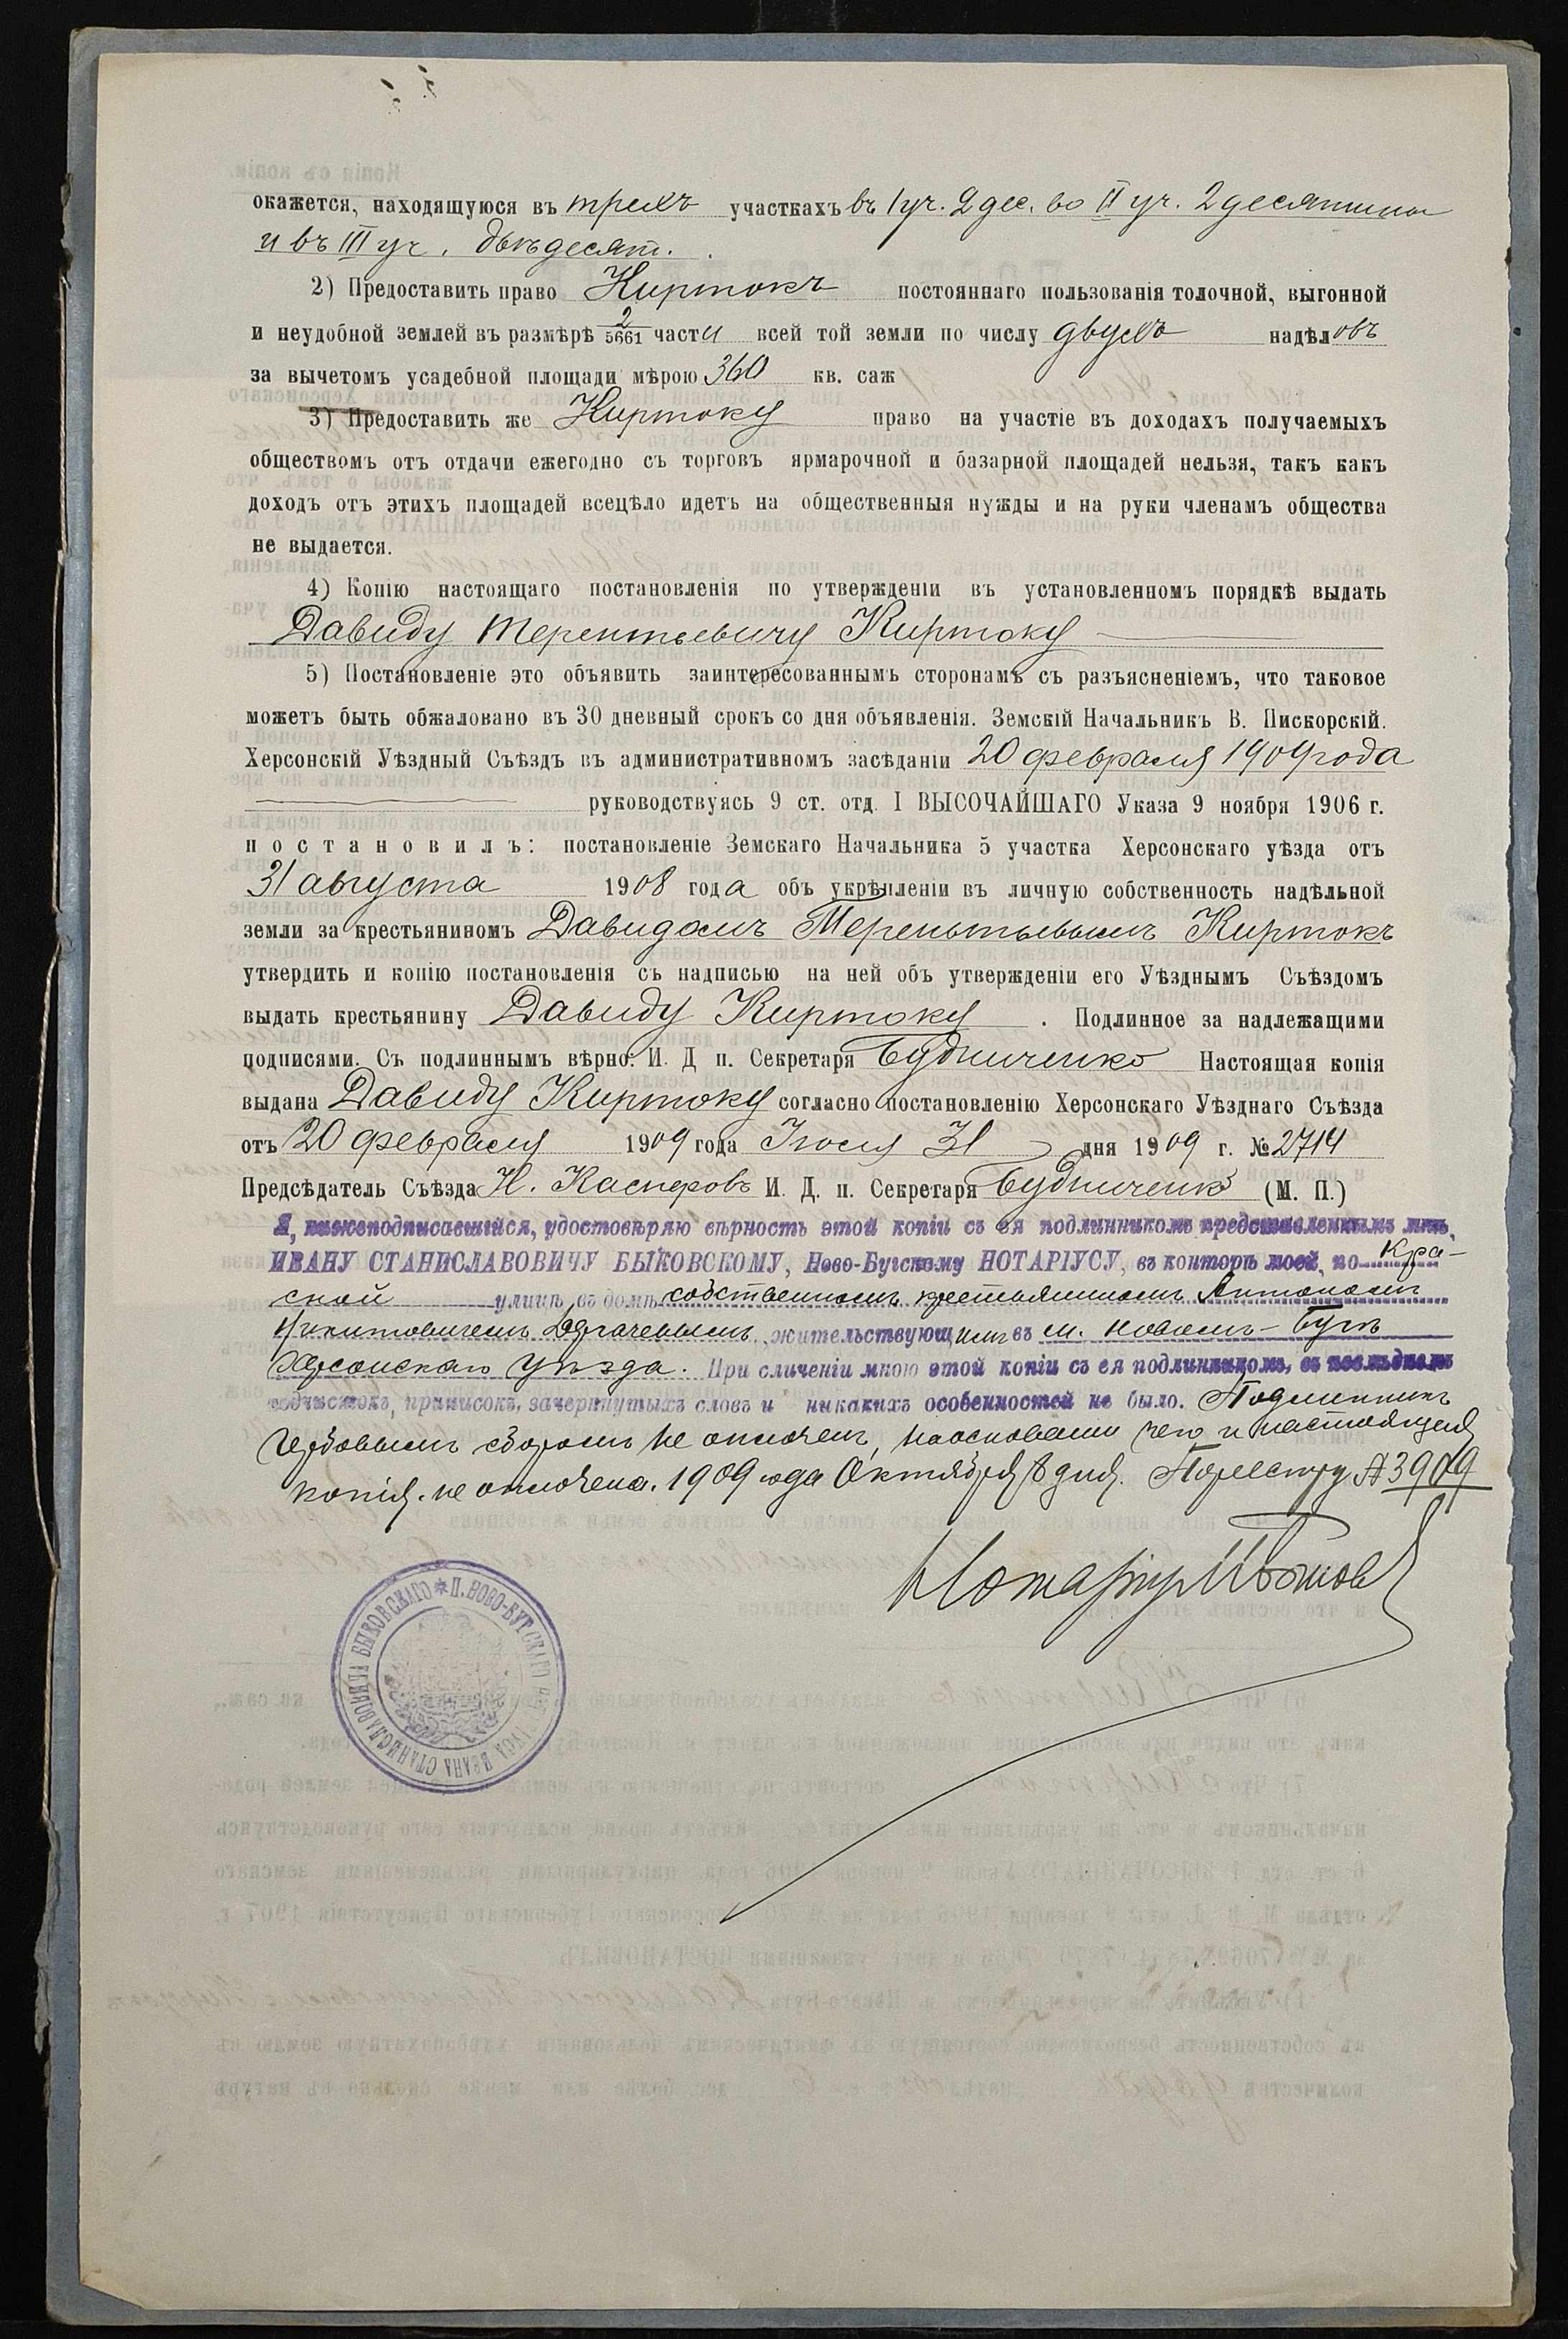 окажется, находящуюся въ трехъ участкахъ въ I уч. 2 дес. во II уч. 2 десятины
и въ III уч. двѣ десят.
2) Предоставить право Киртокъ постояннаго пользованія толочной, выгонной
и неудобной землей въ размѣрѣ 2/5661 части всей той земли по числу двухъ надѣловъ
за вычетомъ усадебной площади мѣрою 360 кв. саж
3) Предоставить же Киртоку право на участіе въ доходахъ получаемыхъ
обществомъ отъ отдачи ежегодно съ торговъ ярмарочной и базарной площадей нельзя, такъ какъ
доходъ отъ этихъ площадей всецѣло идетъ на общественныя нужды и на руки членамъ общества
не выдается.
4) Копію настоящаго постановленія по утвержденіи въ установленномъ порядкѣ выдать
Давиду Терентьевичу Киртоку
5) Постановленіе это объявить заинтересованнымъ сторонамъ съ разъясненіемъ, что таковое
можетъ быть обжаловано въ 30 дневный срокъ со дня объявленія. Земскій Начальникъ В. Пискорскій.
Херсонскій Уѣздный Съѣздъ въ административномъ засѣданіи 20 февраля 1909 года
руководствуясь 9 ст. отд. I ВЫСОЧАЙШАГО Указа 9 ноября 1906 г.
постановилъ: постановленіе Земскаго Начальника 5 участка Херсонскаго уѣзда отъ
31 августа 1908 года объ укрѣпленіи въ личную собственность надѣльной
земли за крестьяниномъ Давидомъ Терентьевымъ Киртокъ
утвердить и копію постановленія съ надписью на ней объ утвержденіи его Уѣзднымъ Съѣздомъ
выдать крестьянину Давиду Киртоку. Подлинное за надлежащими
подписями. Съ подлиннымъ вѣрно: И. Д п. Секретаря Будниченко Настоящая копія
выдана Давиду Киртоку согласно постановленію Херсонскаго Уѣзднаго Съѣзда
отъ 20 февраля 1909 года Іюля 31 дня 1909 г. № 2714
Предсѣдатель Съѣзда Н. Касперовъ И. Д. п. Секретаря Будниченко (М. П.)
Я, нижеподписавшійся, удостовѣряю вѣрность этой копіи съ ея подлинникомъ представленнымъ мнѣ,
ИВАНУ СТАНИСЛАВОВИЧУ БЫКОВСКОМУ, Ново-Бугскому НОТАРІУСУ, въ конторѣ моей, по Кра-
ской улицѣ, въ домѣ собственномъ крестьяниномъ Антономъ
Никитовичемъ жительствующимъ въ м. Новомъ-Бугѣ
Херсонскаго уѣзда. При сличеніи мною этой копіи съ ея подлинникомъ, въ послѣднемъ
подчистокъ, приписокъ, зачеркнутыхъ словъ и никакихъ особенностей не было. Подлинникъ
Гербовымъ сборомъ не оплоченъ, на основаніи чего и настоящая
копія не оплочена. 1909 года Октября 8 дня. По реестру № 3909
Нотаріусъ
П. НОВО-БУГСКАГО НОТАРІУСА ИВАНА СТАНИСЛАВОВИЧА БЫКОВСКАГО